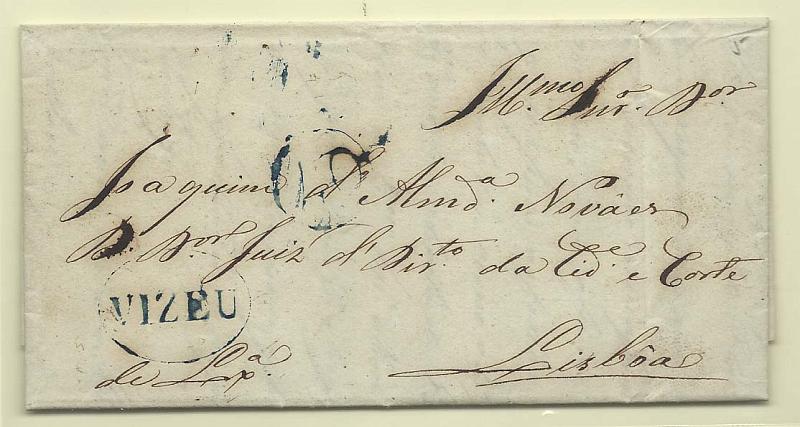 Ill.mo Snr. Dor
Joaquim d'Almd.a Nováes
D. Dor Juiz d'Dir.to da Cid.e e Corte
VIZEU
de Lx.a Lisbôa